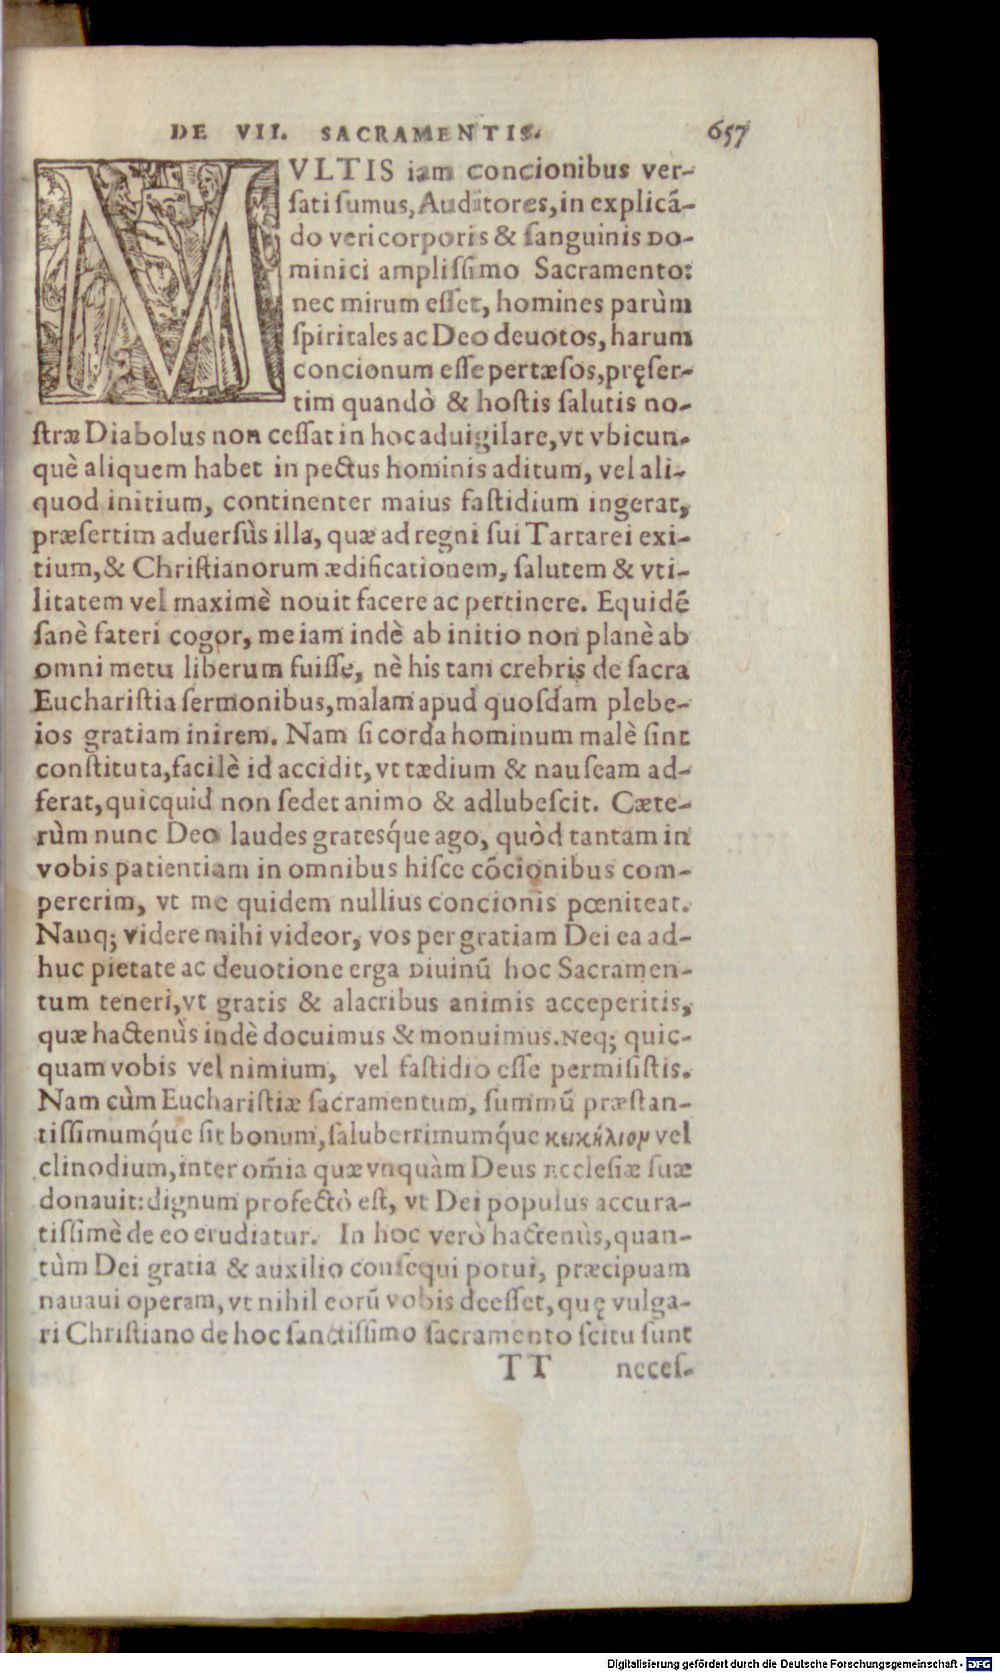 DE VII. SACRAMENTIS. 657
MVLTIS iam concionibus ver-
ſati ſumus, Auditores, in explicā-
do veri corporis & ſanguinis DO-
minici ampliſſimo Sacramento:
nec mirum eſſet, homines parùm
ſpiritales ac Deo deuotos, harum
concionum eſſe pertæſos, pręſer-
tim quandò & hoſtis ſalutis no-
ſtræ Diabolus non ceſſat in hoc aduigilare, vt vbicun-
què aliquem habet in pectus hominis aditum, vel ali-
quod initium, continenter maius faſtidium ingerat,
præſertim aduerſùs illa, quæ ad regni ſui Tartarei exi-
tium, & Chriſtianorum ædificationem, ſalutem & vti-
litatem vel maximè nouit facere ac pertinere. Equidē
ſanè fateri cogor, me iam indè ab initio non planè ab
omni metu liberum fuiſſe, nè his tam crebris de ſacra
Euchariſtia ſermonibus, malam apud quoſdam plebe-
ios gratiam inirem. Nam ſi corda hominum malè ſint
conſtituta, facilè id accidit, vt tædium & nauſeam ad-
ferat, quicquid non ſedet animo & adlubeſcit. Cæte-
rùm nunc Deo laudes grates q́ue ago, quòd tantam in
vobis patientiam in omnibus hiſce cōcionibus com-
pererim, vt me quidem nullius concionis pœniteat.
Nanq; videre mihi videor, vos per gratiam Dei ea ad-
huc pietate ac deuotione erga Diuinū hoc Sacramen-
tum teneri, vt gratis & alacribus animis acceperitis,
quæ hactenùs indè docuimus & monuimus. Neq; quic-
quam vobis vel nimium, vel faſtidio eſſe permiſiſtis.
Nam cùm Euchariſtiæ ſacramentum, ſummū præſtan-
tiſſimumq́ue ſit bonum, ſaluberrimumq́ue κειμήλιον vel
clinodium, inter om̄ia quæ vnquàm Deus Eccleſiæ ſuæ
donauit: dignum profectò eſt, vt Dei populus accura-
tiſſimè de eo erudiatur. In hoc verò hactenùs, quan-
tùm Dei gratia & auxilio conſequi potui, præcipuam
nauaui operam, vt nihil eorū vobis deeſſet, quę vulga-
ri Chriſtiano de hoc ſanctiſſimo ſacramento ſcitu ſunt
TT neceſ-
Digitalisierung gefördert durch die Deutsche Forschungsgemeinschaft - DFG